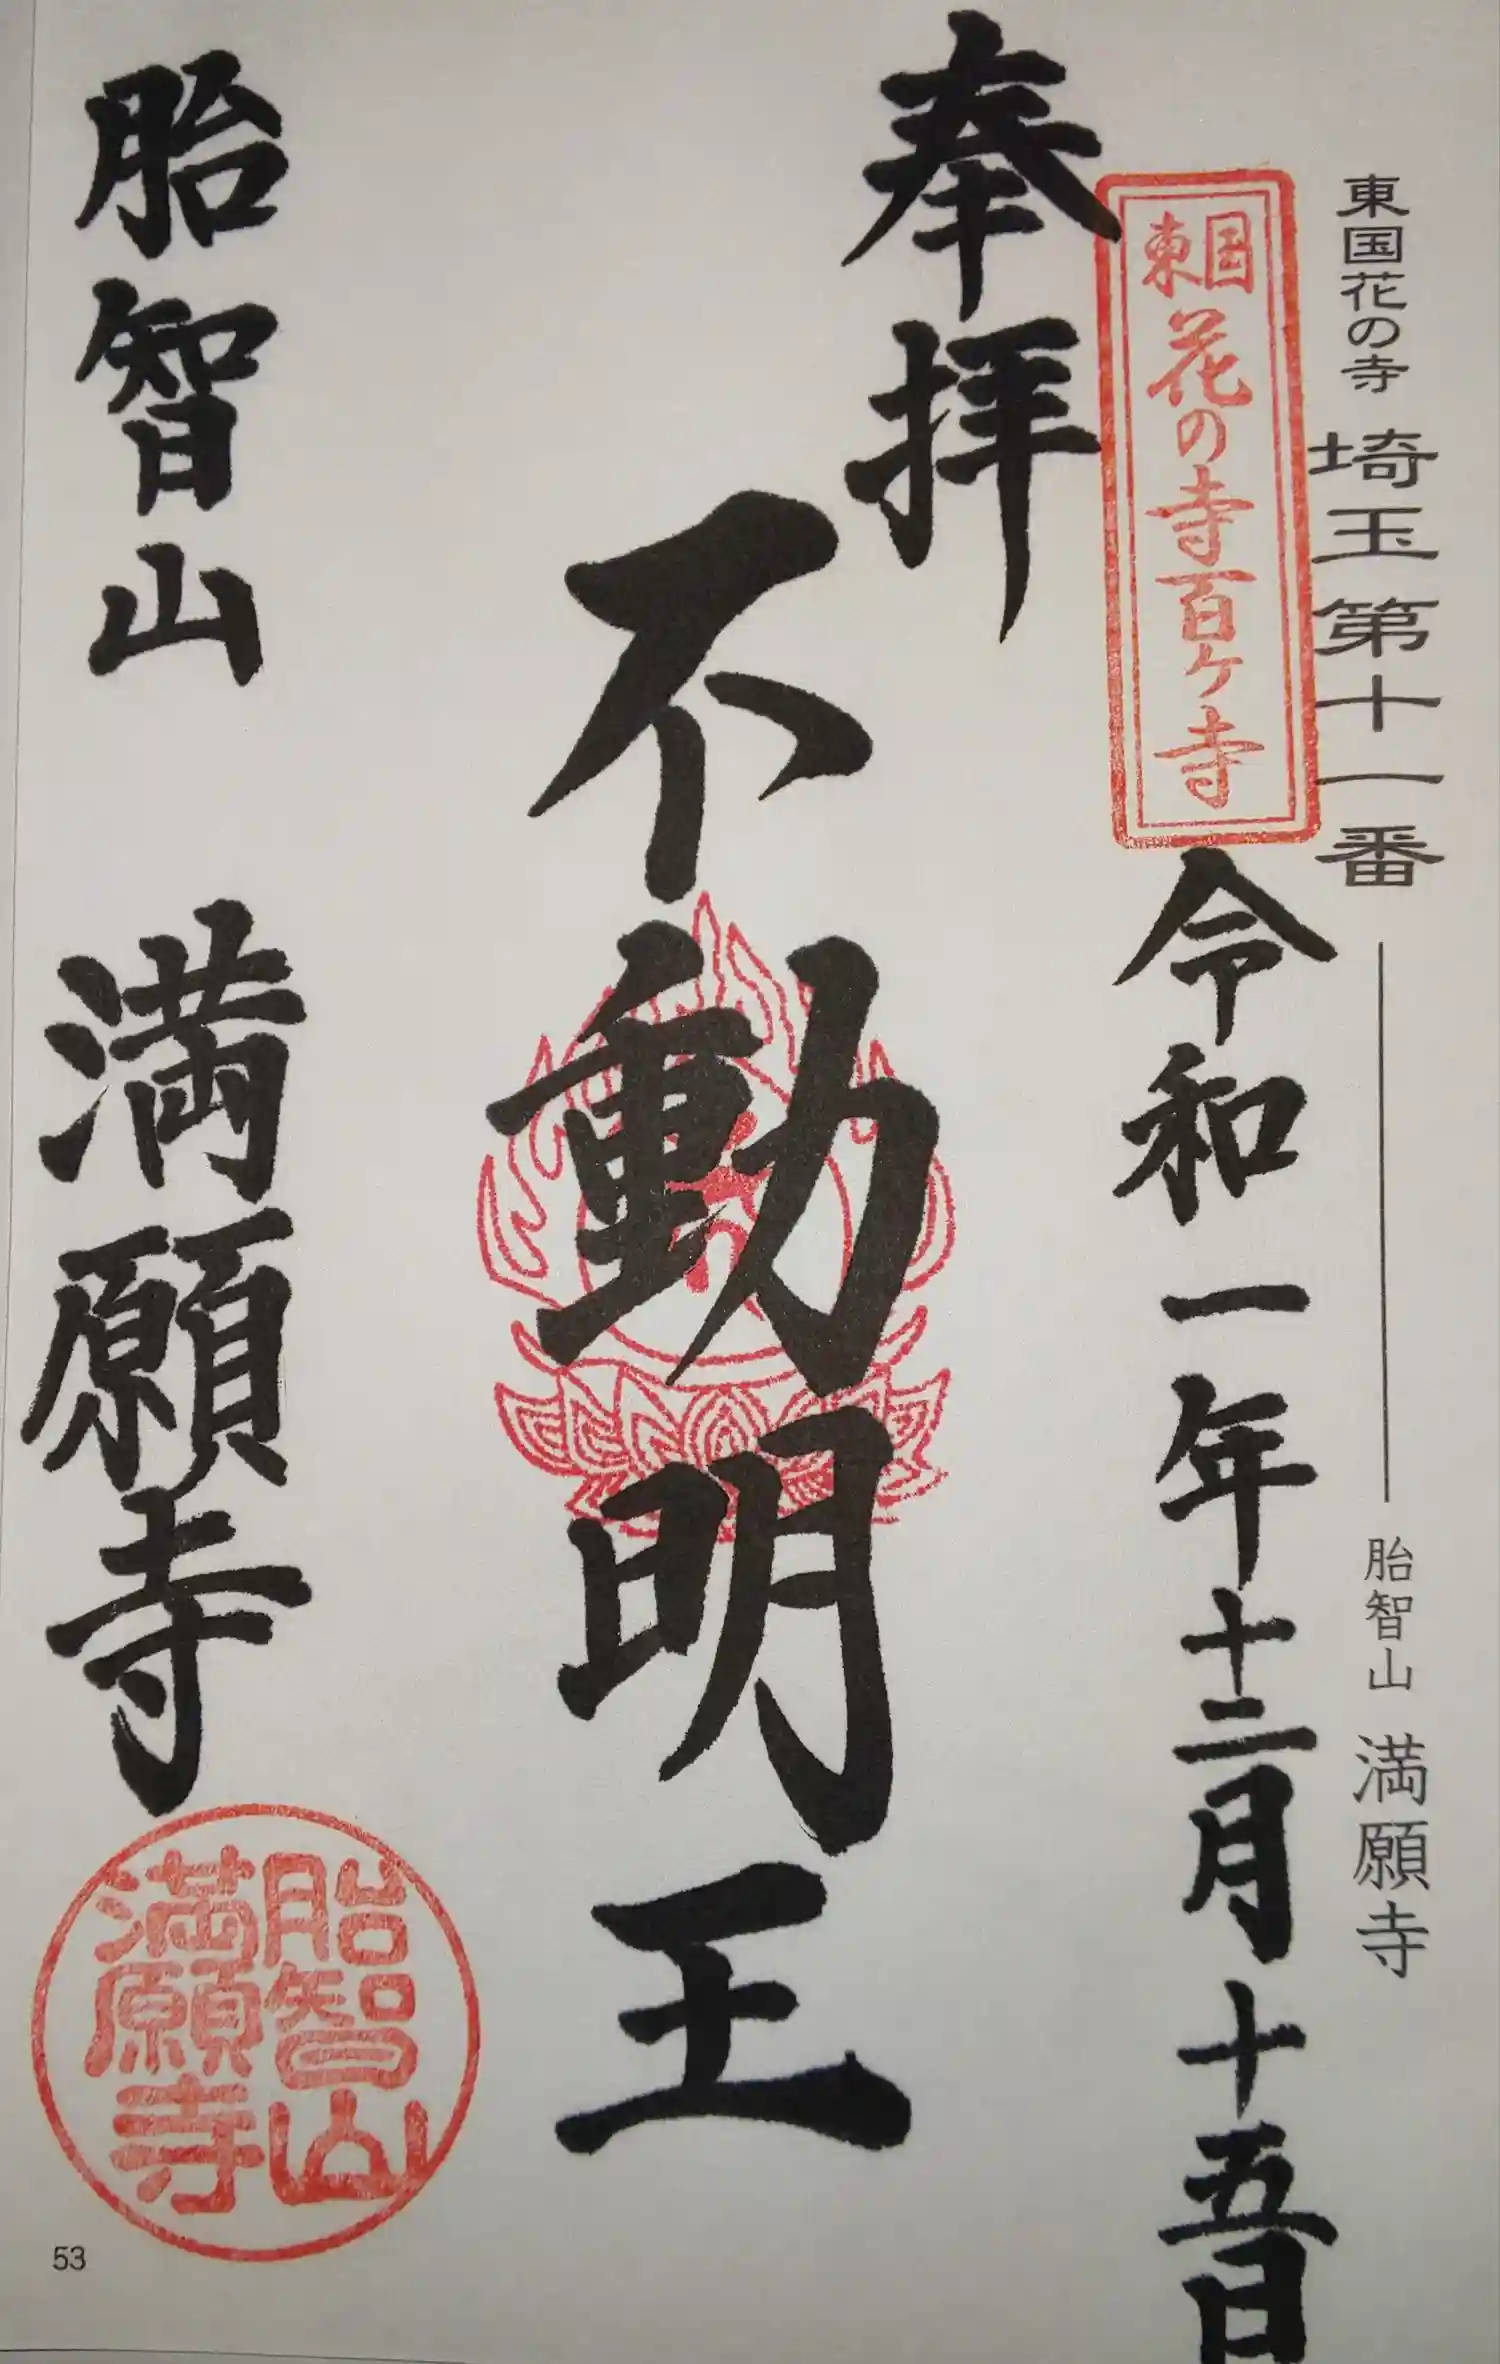 東国花の寺 埼玉第十一番
胎智山 満願寺
東国
花の寺百ヶ寺
奉拝
令和一年十二月十五日
不動明王
胎智山 満願寺
胎智山
満願寺
53